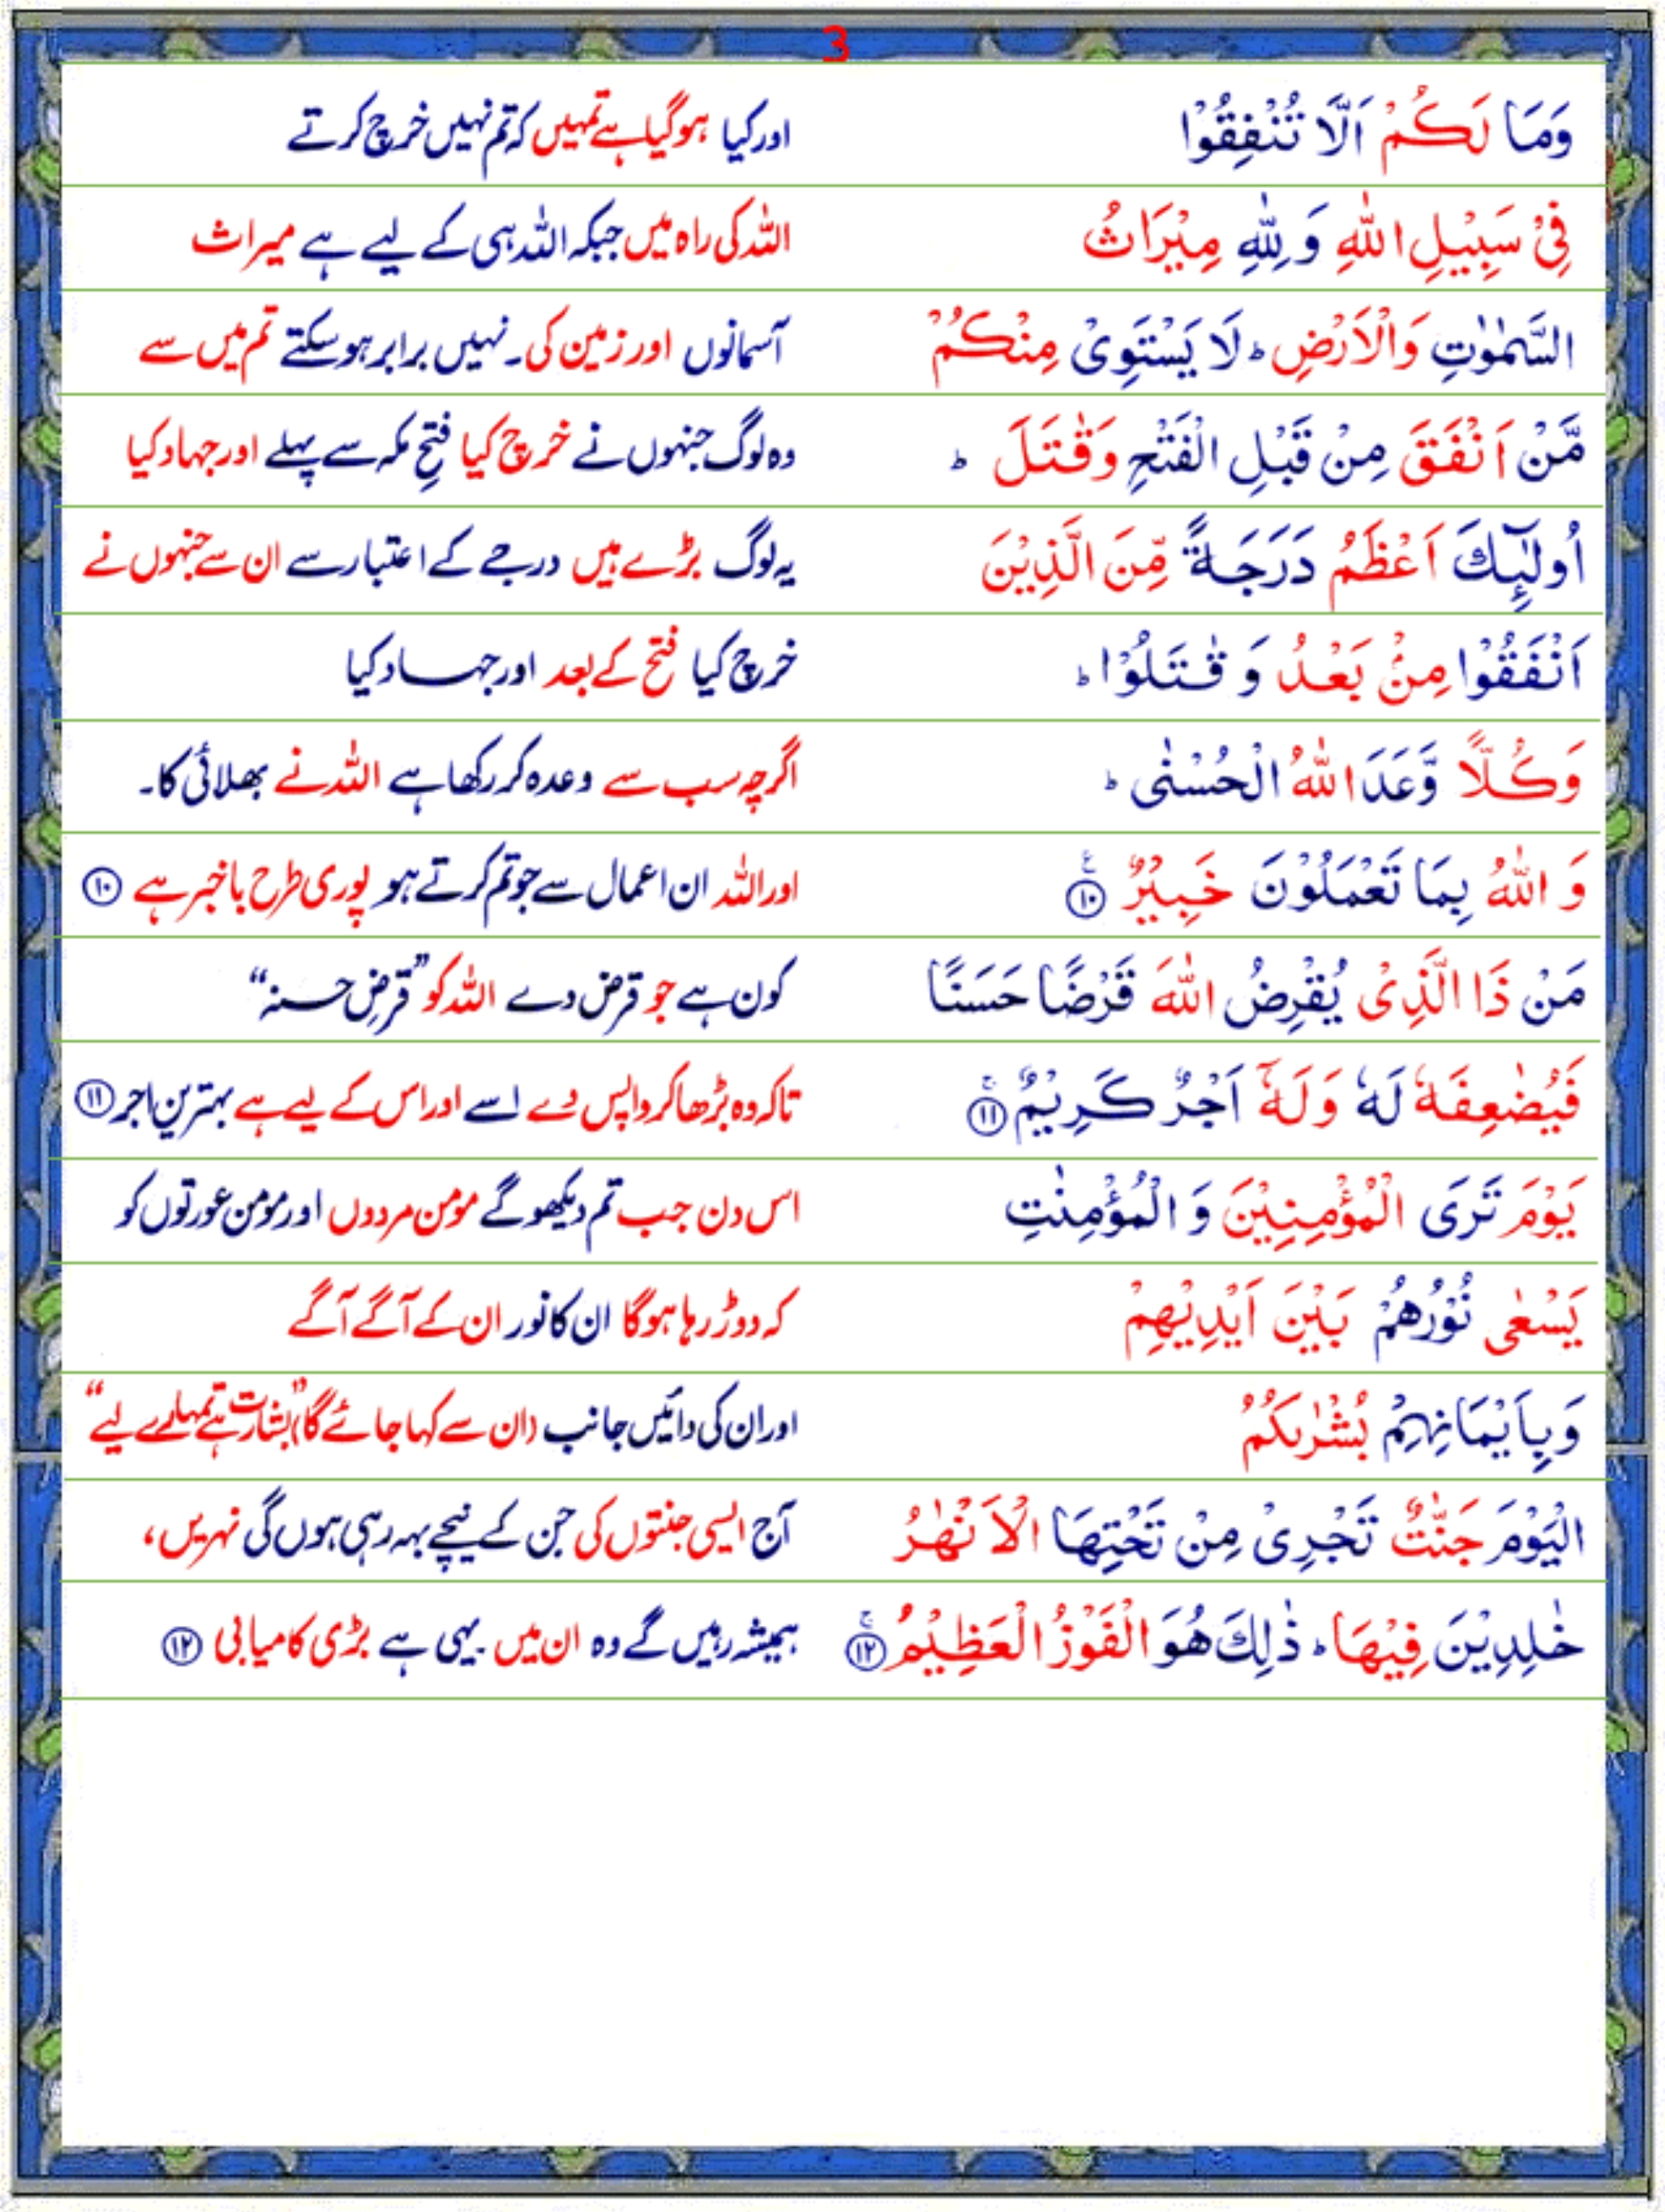 3
وَمَا لَكُمْ اَلَّا تُنْفِقُوْا اور کیا ہوگیا ہے تمہیں کہ تم نہیں خرچ کرتے
فِیْ سَبِیْلِ اللّٰهِ وَ لِلّٰهِ مِیْرَاثُ اللہ کی راہ میں جبکہ اللہ ہی کے لیے ہے میراث
السَّمٰوٰتِ وَالْاَرْضِ ؕ لَا یَسْتَوِیْ مِنْكُمْ آسمانوں اور زمین کی۔ نہیں برابر ہوسکتے تم میں سے
مَّنْ اَنْفَقَ مِنْ قَبْلِ الْفَتْحِ وَقٰتَلَ ؕ وہ لوگ جنہوں نے خرچ کیا فتحِ مکہ سے پہلے اور جہاد کیا
اُولٰٓئِكَ اَعْظَمُ دَرَجَةً مِّنَ الَّذِیْنَ یہ لوگ بڑے ہیں درجے کے اعتبار سے ان سے جنہوں نے
اَنْفَقُوْا مِنْۢ بَعْدُ وَ قٰتَلُوْا ؕ خرچ کیا فتح کے بعد اور جہاد کیا
وَكُلًّا وَّعَدَ اللّٰهُ الْحُسْنٰی ؕ اگرچہ سب سے وعدہ کر رکھا ہے اللہ نے بھلائی کا۔
وَ اللّٰهُ بِمَا تَعْمَلُوْنَ خَبِیْرٌ ۧ ⑩ اور اللہ ان اعمال سے جو تم کرتے ہو پوری طرح باخبر ہے ⑩
مَنْ ذَا الَّذِیْ یُقْرِضُ اللّٰهَ قَرْضًا حَسَنًا کون ہے جو قرض دے اللہ کو ”قرضِ حسنہ“
فَیُضٰعِفَهٗ لَهٗ وَ لَهٗۤ اَجْرٌ كَرِیْمٌ ۚ ⑪ تاکہ وہ بڑھا کر واپس دے اسے اور اس کے لیے ہے بہترین اجر ⑪
یَوْمَ تَرَی الْمُؤْمِنِیْنَ وَ الْمُؤْمِنٰتِ اس دن جب تم دیکھو گے مومن مردوں اور مومن عورتوں کو
یَسْعٰی نُوْرُهُمْ بَیْنَ اَیْدِیْهِمْ کہ دوڑ رہا ہوگا ان کا نور ان کے آگے آگے
وَبِاَیْمَانِهِمْ بُشْرٰىكُمُ اور ان کی دائیں جانب (ان سے کہا جائے گا) ”بشارت ہے تمہارے لیے“
الْیَوْمَ جَنّٰتٌ تَجْرِیْ مِنْ تَحْتِهَا الْاَنْهٰرُ آج ایسی جنتوں کی جن کے نیچے بہہ رہی ہوں گی نہریں،
خٰلِدِیْنَ فِیْهَا ؕ ذٰلِكَ هُوَ الْفَوْزُ الْعَظِیْمُ ۚ ⑫ ہمیشہ رہیں گے وہ ان میں۔ یہی ہے بڑی کامیابی ⑫